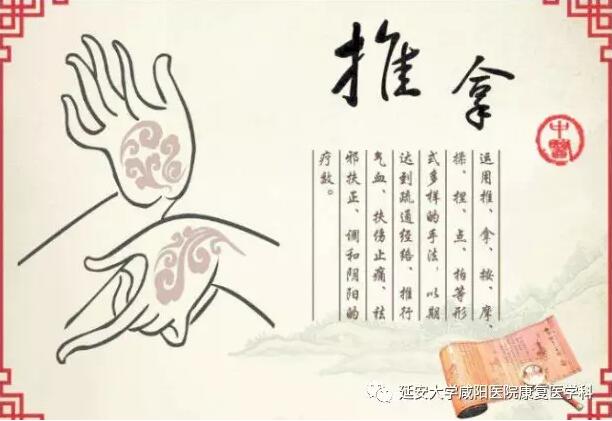 推拿
中醫
运用推、拿、按、摩、
揉、捏、点、拍等形
式多样的手法，以期
达到疏通经络、推行
气血、扶伤止痛、祛
邪扶正、调和阴阳的
疗效。
延安大学咸阳医院康复医学科